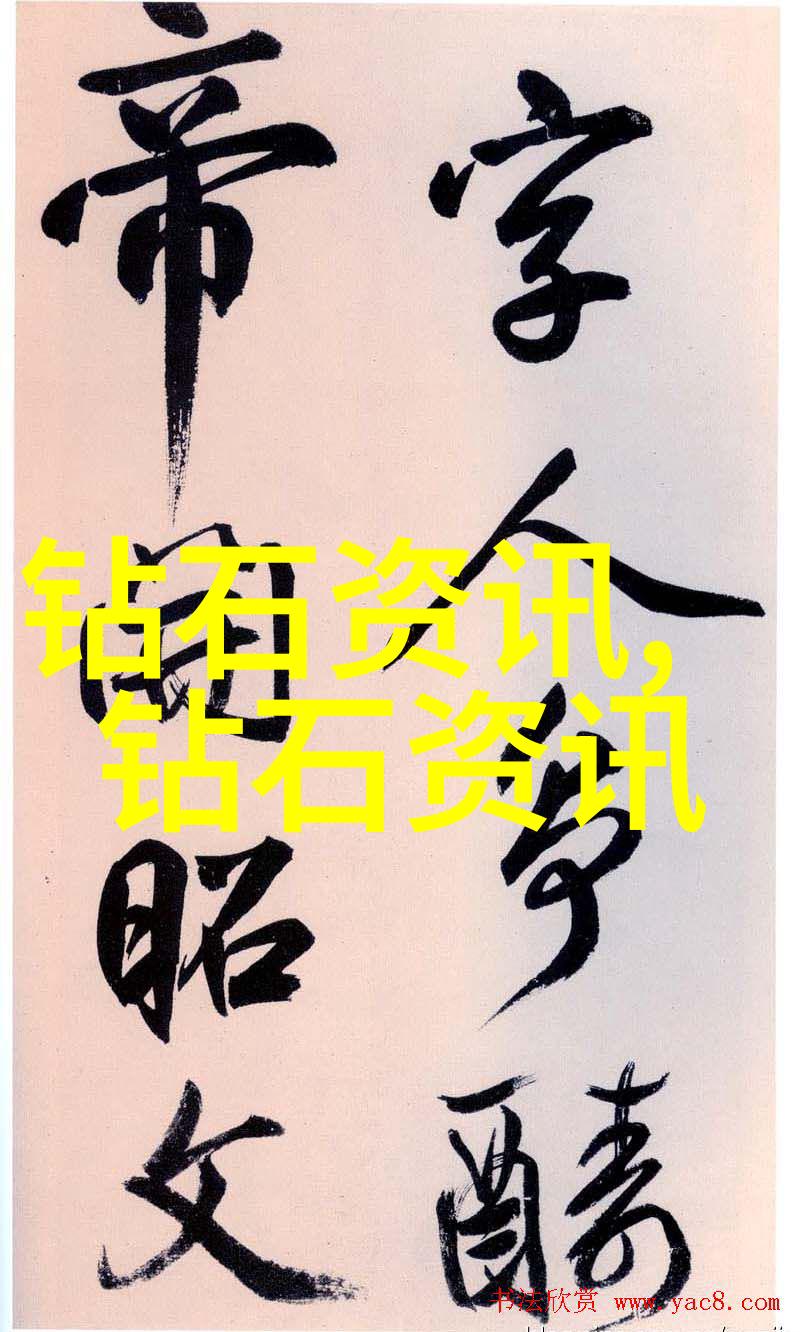 字人爭醻
帝昭文
钻石资讯,
钻石资讯
书法欣赏 www.yac8.com